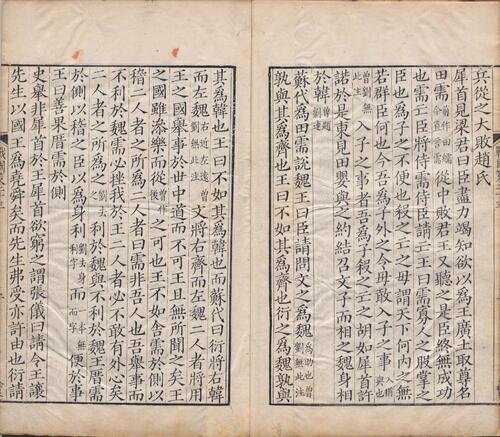 兵從之大敗趙氏
犀首見梁君曰臣盡力竭知欲以爲王廣土取尊名
田需從中敗君王又聽之是臣終無成功
也需亡臣將侍需侍臣請亡王曰需寡人之股掌之
臣也爲子之不便也殺之亡之毋謂天下何內之無
若群臣何也今吾爲子外之令毋敢入子之事入猶與也
曾劉無此注入子之事者吾爲子殺之亡之胡如犀首許
諾於是東見田嬰與之約結召文子而相之魏身相
於韓曾題劉連
蘇代爲田需說魏王曰臣請問文之爲魏爲助也曾劉無此注
孰與其爲齊也王曰不如其爲齊也衍之爲魏孰與
其爲韓也王曰不如其爲韓也而蘇代曰衍將右韓
而左魏右近左遠曾劉無此注文將右齊而左魏二人者將用
王之國舉事於世中道而不可王且無所聞之矣王
之國雖滲樂而從曾作後之可也王不如舍需於側以
稽二人者之所爲二人者曰需非吾人也吾舉事而
不利於魏需必挫我於王二人者必不敢有外心矣
二人者之所爲之劉去之利於魏與不利於魏王厝需
於側以稽之臣以爲身利劉去身利字而一本無而字便於事
王曰善果厝需於側
史舉非犀首於王犀首欲窮之謂張儀曰請令王讓
先生以國王爲堯舜矣而先生弗受亦許由也衍請